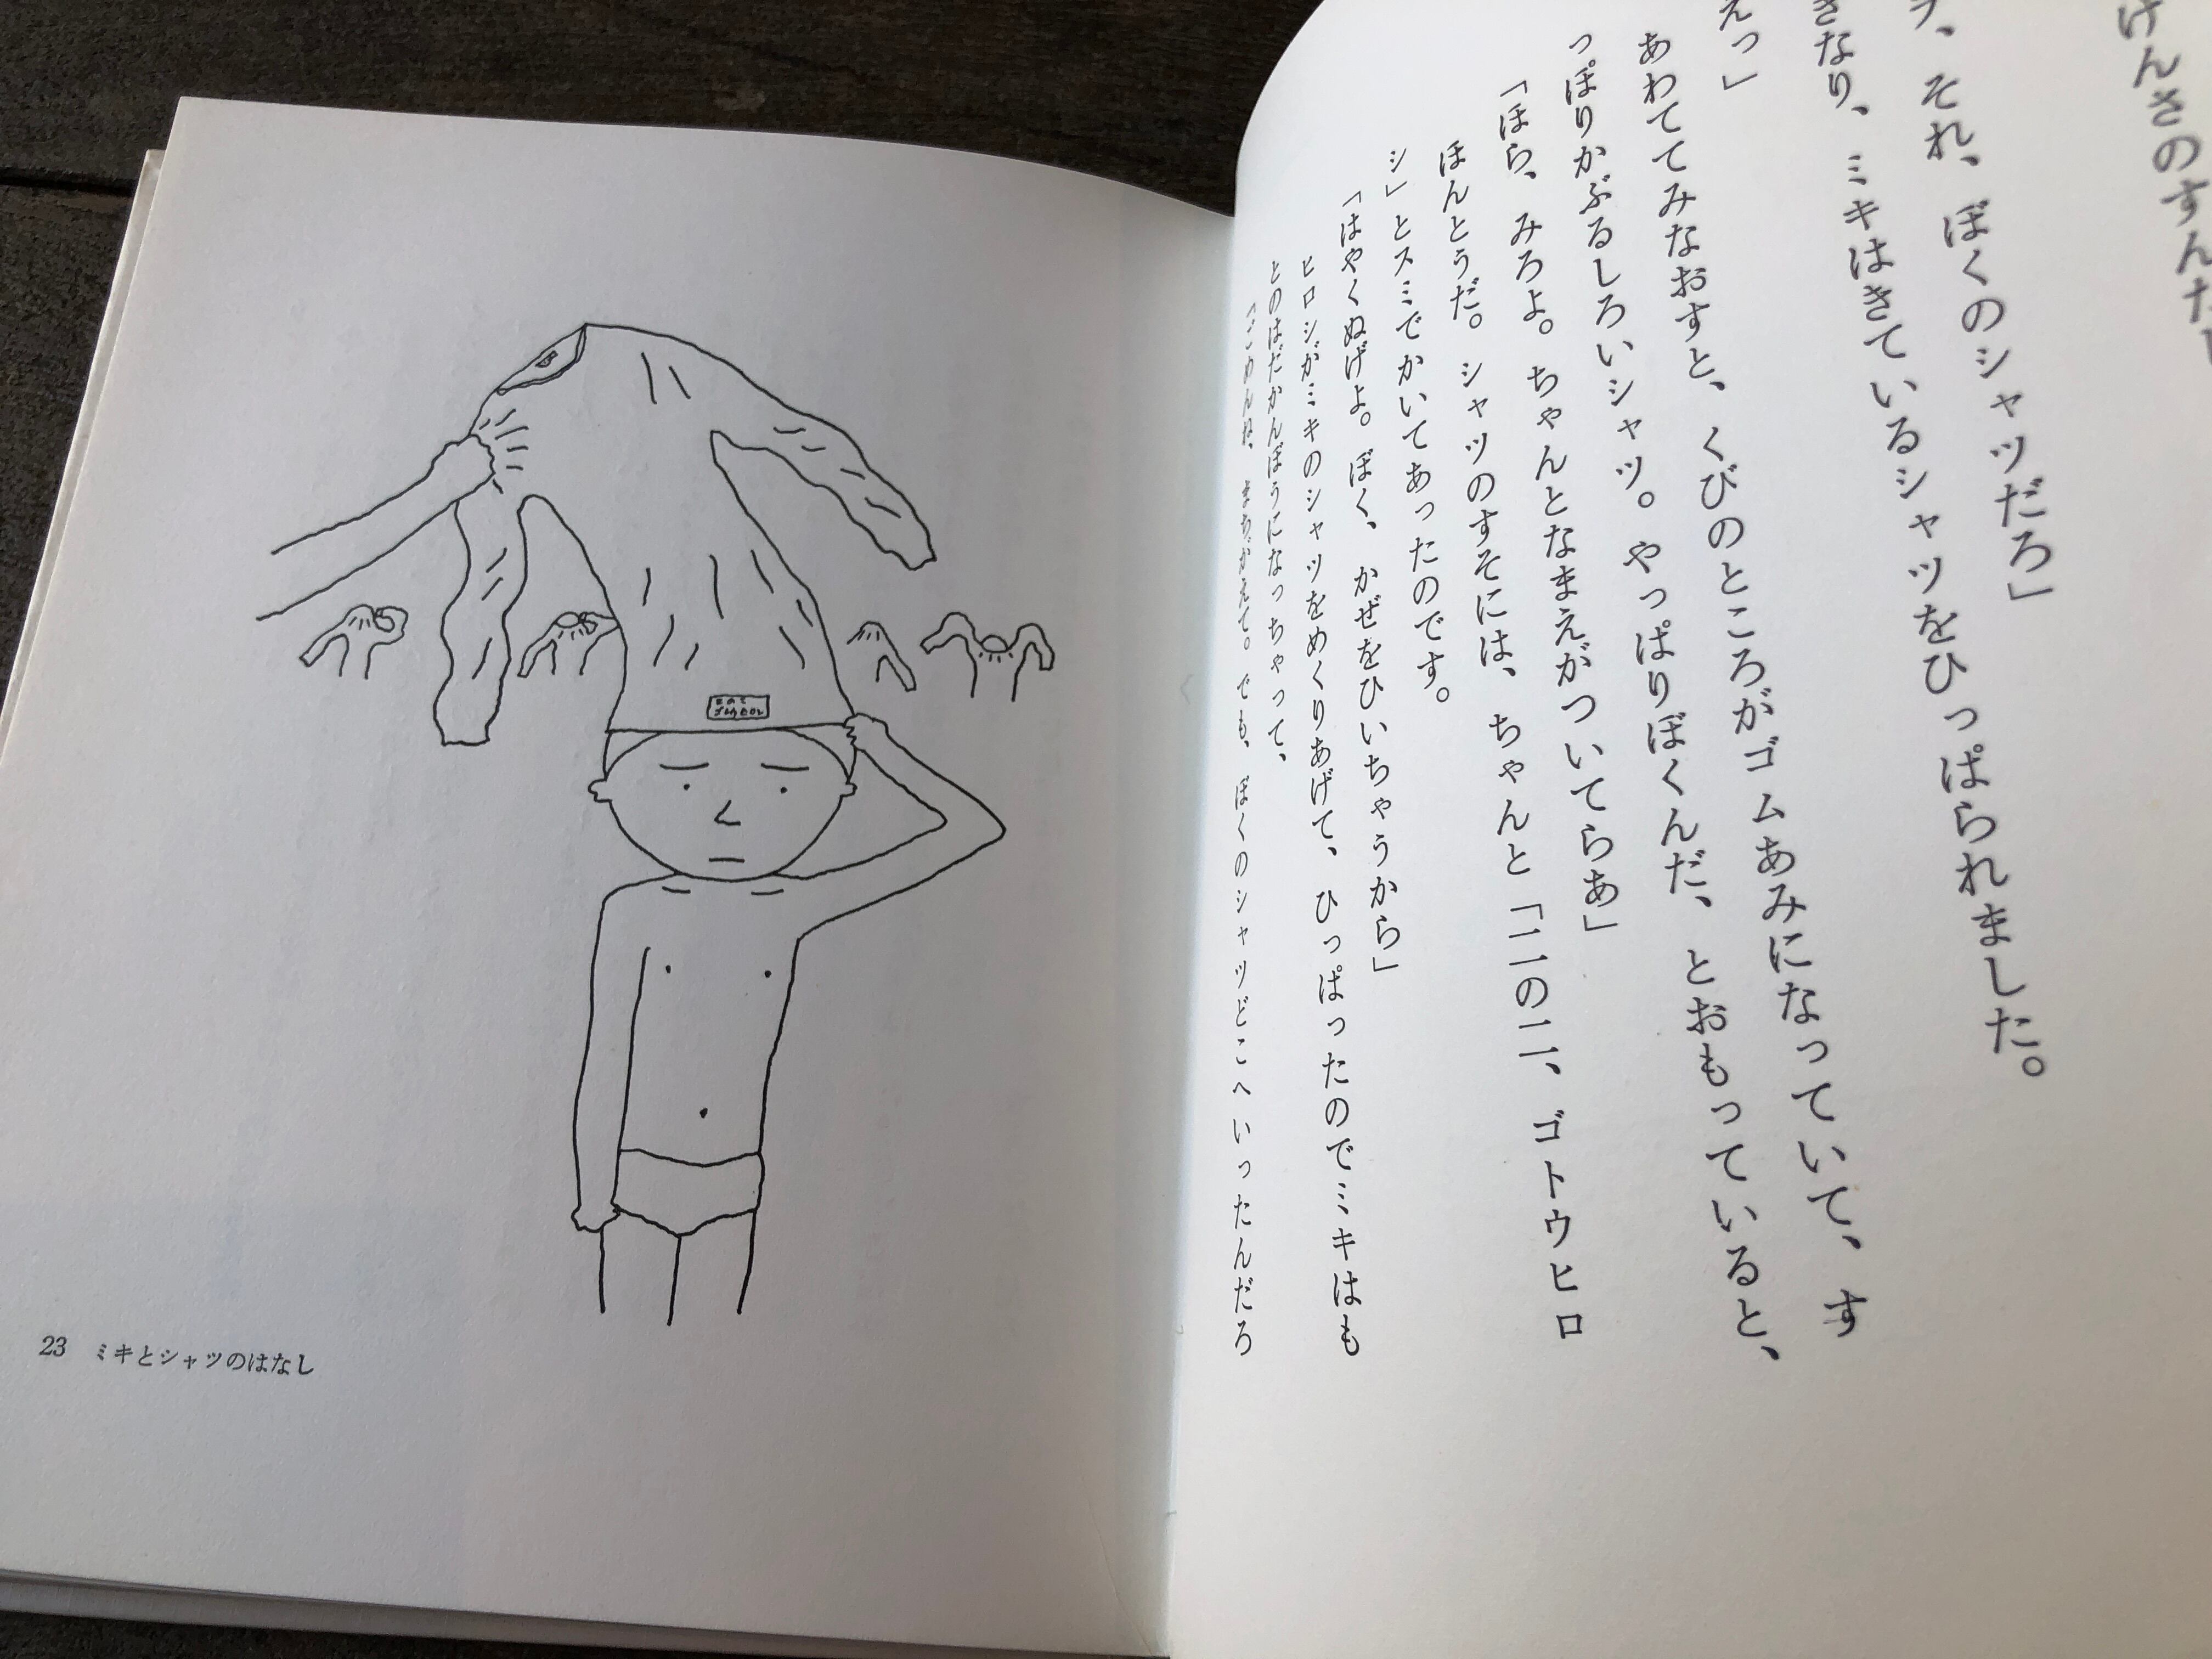 けんさのすんだ
それ、ぼくのシャツだろ」
きなり、ミキはきているシャツをひっぱられました。
えっ」
あわててみなおすと、くびのところがゴムあみになっていて、す
っぽりかぶるしろいシャツ。やっぱりぼくんだ、とおもっていると、
「ほら、みろよ。ちゃんとなまえがついてらあ」
ほんとうだ。シャツのすそには、ちゃんと「二の二、ゴトウヒロ
シ」とスミでかいてあったのです。
「はやくぬげよ。ぼく、かぜをひいちゃうから」
ヒロシがミキのシャツをめくりあげて、ひっぱったのでミキはも
とのはだかんぼうになっちゃって、
「ごめんね、まちがえて。でも、ぼくのシャツどこへいったんだろ
23 ミキとシャツのはなし